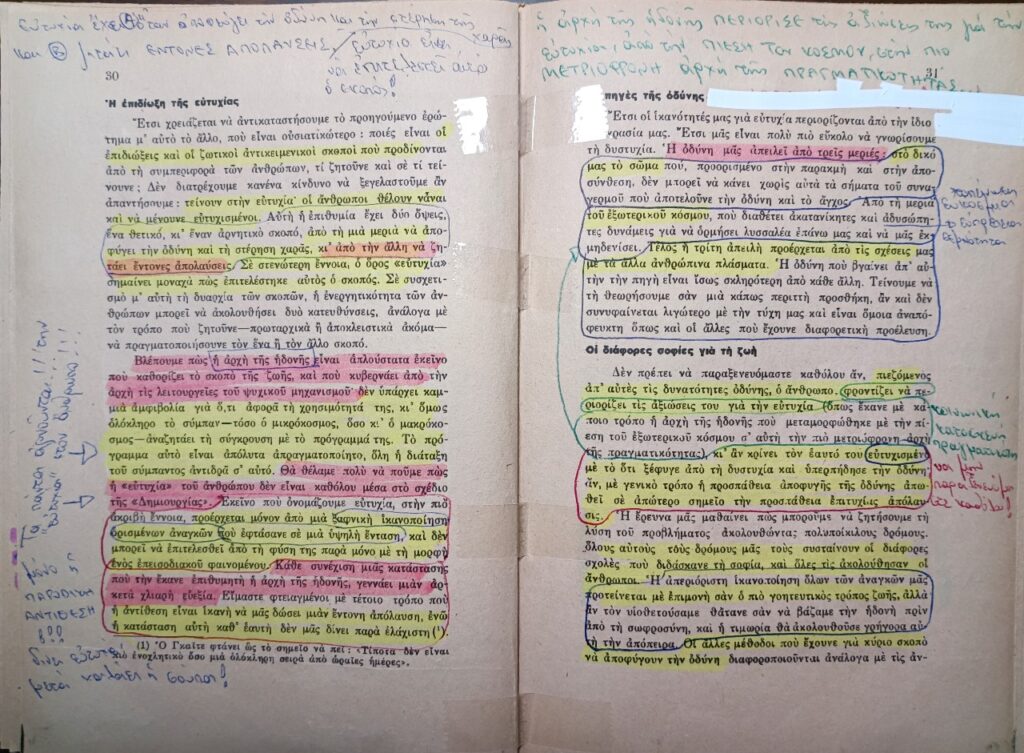 ευτυχία έχει Α όταν αποφεύγει την οδύνη και την στέρηση της χαράς
και Β μετά ΕΝΤΟΝΕΣ ΑΠΟΛΑΥΣΕΙΣ
ευτυχία είναι
να επιτελεστεί αυτό
ο σκοπός!
30
Ἡ ἐπιδίωξη τῆς εὐτυχίας
Ἔτσι χρειάζεται νὰ ἀντικαταστήσουμε τὸ προηγούμενο ἐρώ-
τημα μ' αὐτὸ τὸ ἄλλο, ποὺ εἶναι οὐσιατικώτερο : ποιές εἶναι οἱ
ἐπιδιώξεις καὶ οἱ ζωτικοὶ ἀντικειμενικοὶ σκοποὶ ποὺ προδίνονται
ἀπὸ τὴ συμπεριφορὰ τῶν ἀνθρώπων, τί ζητοῦνε καὶ σὲ τί τεί-
νουνε ; Δὲν διατρέχουμε κανένα κίνδυνο νὰ ξεγελαστοῦμε ἂν
ἀπαντήσουμε : τείνουν στὴν εὐτυχία· οἱ ἄνθρωποι θέλουν νἆναι
καὶ νὰ μένουνε εὐτυχισμένοι. Αὐτὴ ἡ ἐπιθυμία ἔχει δύο ὄψεις,
ἕνα θετικό, κι' ἕναν ἀρνητικὸ σκοπό, ἀπὸ τὴ μιὰ μεριὰ νὰ ἀπο-
φύγει τὴν ὀδύνη καὶ τὴ στέρηση χαρᾶς, κι' ἀπὸ τὴν ἄλλη νὰ ζη-
τάει ἔντονες ἀπολαύσεις. Σὲ στενώτερη ἔννοια, ὁ ὅρος «εὐτυχία»
σημαίνει μοναχὰ πὼς ἐπιτελέστηκε αὐτὸς ὁ σκοπός. Σὲ συσχετι-
σμὸ μ' αὐτὴ τὴ δυαρχία τῶν σκοπῶν, ἡ ἐνεργητικότητα τῶν ἀν-
θρώπων μπορεῖ νὰ ἀκολουθήσει δυὸ κατευθύνσεις, ἀνάλογα μὲ
τὸν τρόπο ποὺ ζητοῦνε—πρωταρχικὰ ἢ ἀποκλειστικὰ ἀκόμα—
νὰ πραγματοποιήσουνε τὸν ἕνα ἢ τὸν ἄλλο σκοπό.
Βλέπουμε πὼς ἡ ἀρχὴ τῆς ἡδονῆς εἶναι ἁπλούστατα ἐκεῖνο
ποὺ καθορίζει τὸ σκοπὸ τῆς ζωῆς, καὶ ποὺ κυβερνάει ἀπὸ τὴν
ἀρχὴ τὶς λειτουργίες τοῦ ψυχικοῦ μηχανισμοῦ· δὲν ὑπάρχει καμ-
μιὰ ἀμφιβολία γιὰ ὅ,τι ἀφορᾶ τὴ χρησιμότητά της, κι' ὅμως
ὁλόκληρο τὸ σύμπαν—τόσο ὁ μικρόκοσμος, ὅσο κι' ὁ μακρό-
κοσμος—ἀναζητάει τὴ σύγκρουση μὲ τὸ πρόγραμμά της. Τὸ πρό-
γραμμα αὐτὸ εἶναι ἀπόλυτα ἀπραγματοποίητο, ὅλη ἡ διάταξη
τοῦ σύμπαντος ἀντιδρᾶ σ' αὐτό. Θὰ θέλαμε πολὺ νὰ ποῦμε πὼς
ἡ «εὐτυχία» τοῦ ἀνθρώπου δὲν εἶναι καθόλου μέσα στὸ σχέδιο
τῆς «Δημιουργίας». Ἐκεῖνο ποὺ ὀνομάζουμε εὐτυχία, στὴν πιὸ
ἀκριβῆ ἔννοια, προέρχεται μόνον ἀπὸ μιὰ ξαφνικὴ ἱκανοποίηση
ὁρισμένων ἀναγκῶν ποὺ ἐφτάσανε σὲ μιὰ ὑψηλὴ ἔνταση, καὶ δὲν
μπορεῖ νὰ ἐπιτελεσθεῖ ἀπὸ τὴ φύση της παρὰ μόνο μὲ τὴ μορφὴ
ἑνὸς ἐπεισοδιακοῦ φαινομένου. Κάθε συνέχιση μιᾶς κατάστασης
ποὺ τὴν ἔκανε ἐπιθυμητὴ ἡ ἀρχὴ τῆς ἡδονῆς, γεννάει μιὰν ἀρ-
κετὰ χλιαρὴ εὐεξία. Εἴμαστε φτειαγμένοι μὲ τέτοιο τρόπο ποὺ
ἡ ἀντίθεση εἶναι ἱκανὴ νὰ μᾶς δώσει μιὰν ἔντονη ἀπόλαυση, ἐνῶ
ἡ κατάσταση αὐτὴ καθ' ἑαυτὴ δὲν μᾶς δίνει παρὰ ἐλάχιστη (¹).
(1) Ὁ Γκαῖτε φτάνει ὣς τὸ σημεῖο νὰ πεῖ : «Τίποτα δὲν εἶναι
πιὸ ἐνοχλητικὸ ὅσο μιὰ ὁλόκληρη σειρὰ ἀπὸ ὡραῖες ἡμέρες».
Τα πάντα
"ευτυχία" του ανθρώπου!!!
ΠΑΡΟΔΙΚΗ
ΑΝΤΙΘΕΣΗ
ἡ ἀρχὴ τῆς ἡδονῆς ΠΕΡΙΟΡΙΣΕ τὶς ἀξιώσεις της γιὰ τὴν
εὐτυχία, ἀπὸ τὴν ΠΙΕΣΗ ΤΟΥ ΚΟΣΜΟΥ, στὴν ΠΙΟ
ΜΕΤΡΙΟΦΡΟΝΗ ἀρχὴ τῆς ΠΡΑΓΜΑΤΙΚΟΤΗΤΑΣ
31
πηγὲς τῆς ὀδύνης
Ἔτσι οἱ ἱκανότητές μας γιὰ εὐτυχία περιορίζονται ἀπὸ τὴν ἰδιο
κρασία μας. Ἔτσι μᾶς εἶναι πολὺ πιὸ εὔκολο νὰ γνωρίσουμε
τὴ δυστυχία. Ἡ ὀδύνη μᾶς ἀπειλεῖ ἀπὸ τρεῖς μεριές : στὸ δικό
μας τὸ σῶμα πού, προορισμένο στὴν παρακμὴ καὶ στὴν ἀπο-
σύνθεση, δὲν μπορεῖ νὰ κάνει χωρὶς αὐτὰ τὰ σήματα τοῦ συνα-
γερμοῦ ποὺ ἀποτελοῦνε τὴν ὀδύνη καὶ τὸ ἄγχος. Ἀπὸ τὴ μεριὰ
τοῦ ἐξωτερικοῦ κόσμου, ποὺ διαθέτει ἀκατανίκητες καὶ ἀδυσώπη-
τες δυνάμεις γιὰ νὰ ὁρμήσει λυσσαλέα ἐπάνω μας καὶ νὰ μᾶς ἐκ-
μηδενίσει. Τέλος ἡ τρίτη ἀπειλὴ προέρχεται ἀπὸ τὶς σχέσεις μας
μὲ τὰ ἄλλα ἀνθρώπινα πλάσματα. Ἡ ὀδύνη ποὺ βγαίνει ἀπ' αὐ-
τὴν τὴν πηγὴ εἶναι ἴσως σκληρότερη ἀπὸ κάθε ἄλλη. Τείνουμε νὰ
τὴ θεωρήσουμε σὰν μιὰ κάπως περιττὴ προσθήκη, ἂν καὶ δὲν
συνυφαίνεται λιγώτερο μὲ τὴν τύχη μας καὶ εἶναι ὅμοια ἀναπό-
φευκτη ὅπως καὶ οἱ ἄλλες ποὺ ἔχουνε διαφορετικὴ προέλευση.
Οἱ διάφορες σοφίες γιὰ τὴ ζωὴ
Δὲν πρέπει νὰ παραξενευόμαστε καθόλου ἄν, πιεζόμενος
ἀπ' αὐτὲς τὶς δυνατότητες ὀδύνης, ὁ ἄνθρωπος φροντίζει νὰ πε-
ριορίζει τὶς ἀξιώσεις του γιὰ τὴν εὐτυχία (ὅπως ἔκανε μὲ κά-
ποιο τρόπο ἡ ἀρχὴ τῆς ἡδονῆς ποὺ μεταμορφώθηκε μὲ τὴν πί-
εση τοῦ ἐξωτερικοῦ κόσμου σ' αὐτὴ τὴν πιὸ μετριόφρονη ἀρχὴ
τῆς πραγματικότητας), κι' ἂν κρίνει τὸν ἑαυτό του εὐτυχισμένο
μὲ τὸ ὅτι ξέφυγε ἀπὸ τὴ δυστυχία καὶ ὑπερπήδησε τὴν ὀδύνη·
ἄν, μὲ γενικὸ τρόπο ἡ προσπάθεια ἀποφυγῆς τῆς ὀδύνης ἀπω-
θεῖ σὲ ἀπώτερο σημεῖο τὴν προσπάθεια ἐπιτυχίας ἀπόλαυ-
σις. Ἡ ἔρευνα μᾶς μαθαίνει πὼς μποροῦμε νὰ ζητήσουμε τὴ
λύση τοῦ προβλήματος ἀκολουθώντας πολυποίκιλους δρόμους.
ὅλους αὐτοὺς τοὺς δρόμους μᾶς τοὺς συσταίνουν οἱ διάφορες
σχολὲς ποὺ διδάσκανε τὴ σοφία, καὶ ὅλες τὶς ἀκολούθησαν οἱ
ἄνθρωποι. Ἡ ἀπεριόριστη ἱκανοποίηση ὅλων τῶν ἀναγκῶν μᾶς
προτείνεται μὲ ἐπιμονὴ σὰν ὁ πιὸ γοητευτικὸς τρόπος ζωῆς, ἀλλὰ
ἂν τὸν υἱοθετούσαμε θἄτανε σὰν νὰ βάζαμε τὴν ἡδονὴ πρὶν
ἀπὸ τὴ σωφροσύνη, καὶ ἡ τιμωρία θὰ ἀκολουθοῦσε γρήγορα αὐ-
τὴ τὴν ἀπόπειρα. Οἱ ἄλλες μέθοδοι ποὺ ἔχουνε γιὰ κύριο σκοπὸ
νὰ ἀποφύγουν τὴν ὀδύνη διαφοροποιοῦνται ἀνάλογα μὲ τὶς ἀν-